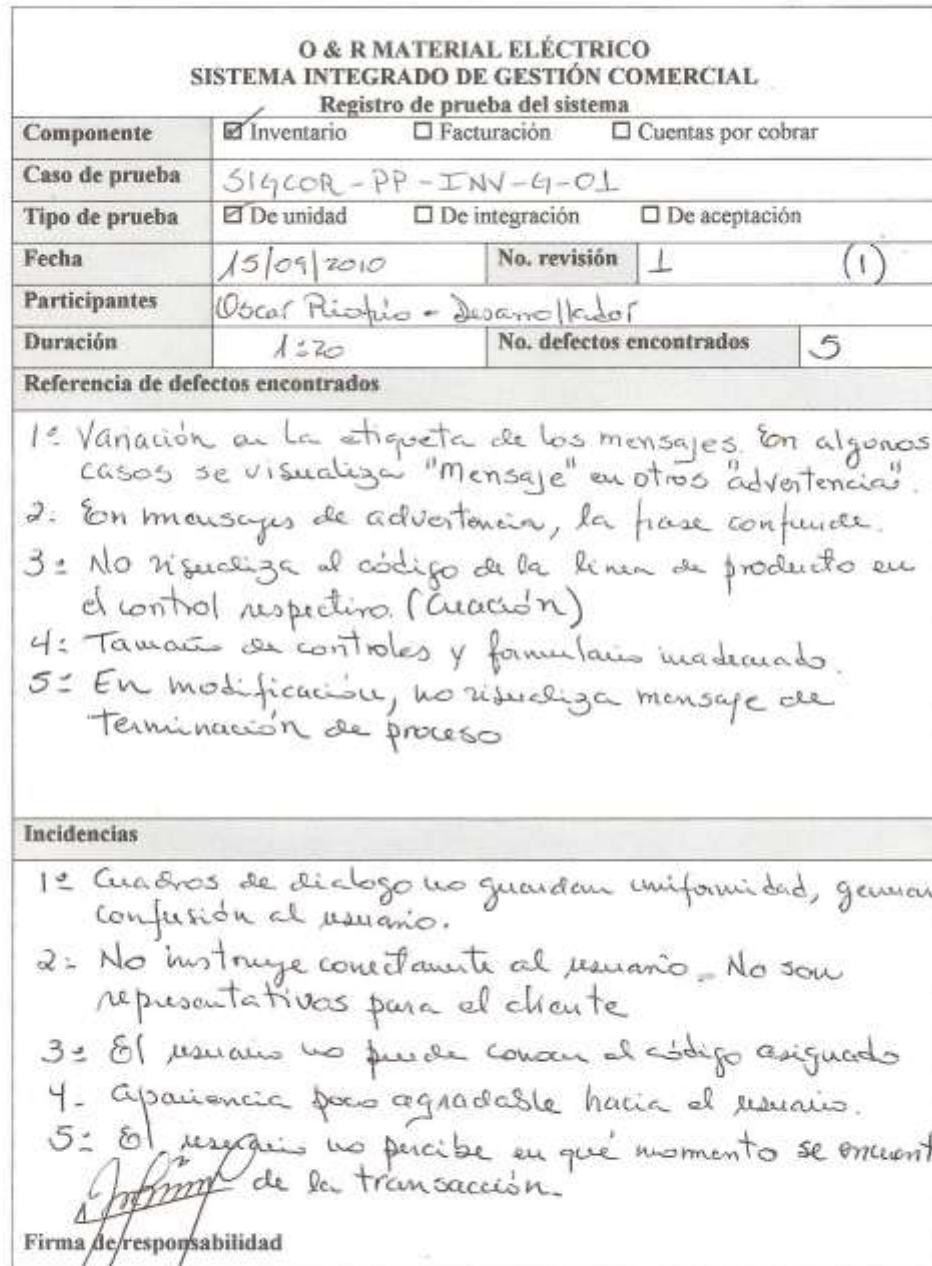 O & R MATERIAL ELÉCTRICO
SISTEMA INTEGRADO DE GESTIÓN COMERCIAL
Registro de prueba del sistema
Componente ☑ Inventario ☐ Facturación ☐ Cuentas por cobrar
Caso de prueba SIGCOR-PP-INV-G-01
Tipo de prueba ☑ De unidad ☐ De integración ☐ De aceptación
Fecha 15/09/2010 No. revisión 1 (1)
Participantes Oscar - Desarrollador
Duración 1:20 No. defectos encontrados 5
Referencia de defectos encontrados
1: Variación en la etiqueta de los mensajes. En algunos
casos se visualiza "Mensaje" en otros "advertencia".
2: En mensajes de advertencia, la frase confunde.
3: No visualiza el código de la linea de producto en
el control respectivo. (Creación)
4: Tamaño de controles y formulario inadecuado.
5: En modificación, no visualiza mensaje de
terminación de proceso
Incidencias
1: Cuadros de dialogo no guardan uniformidad, generan
confusión al usuario.
2: No instruye correctamente al usuario. No son
representativas para el cliente
3: El usuario no puede conocer el código asignado
4. Apariencia poco agradable hacia el usuario.
5: El usuario no percibe en qué momento se encuent
de la transacción.
Firma de responsabilidad